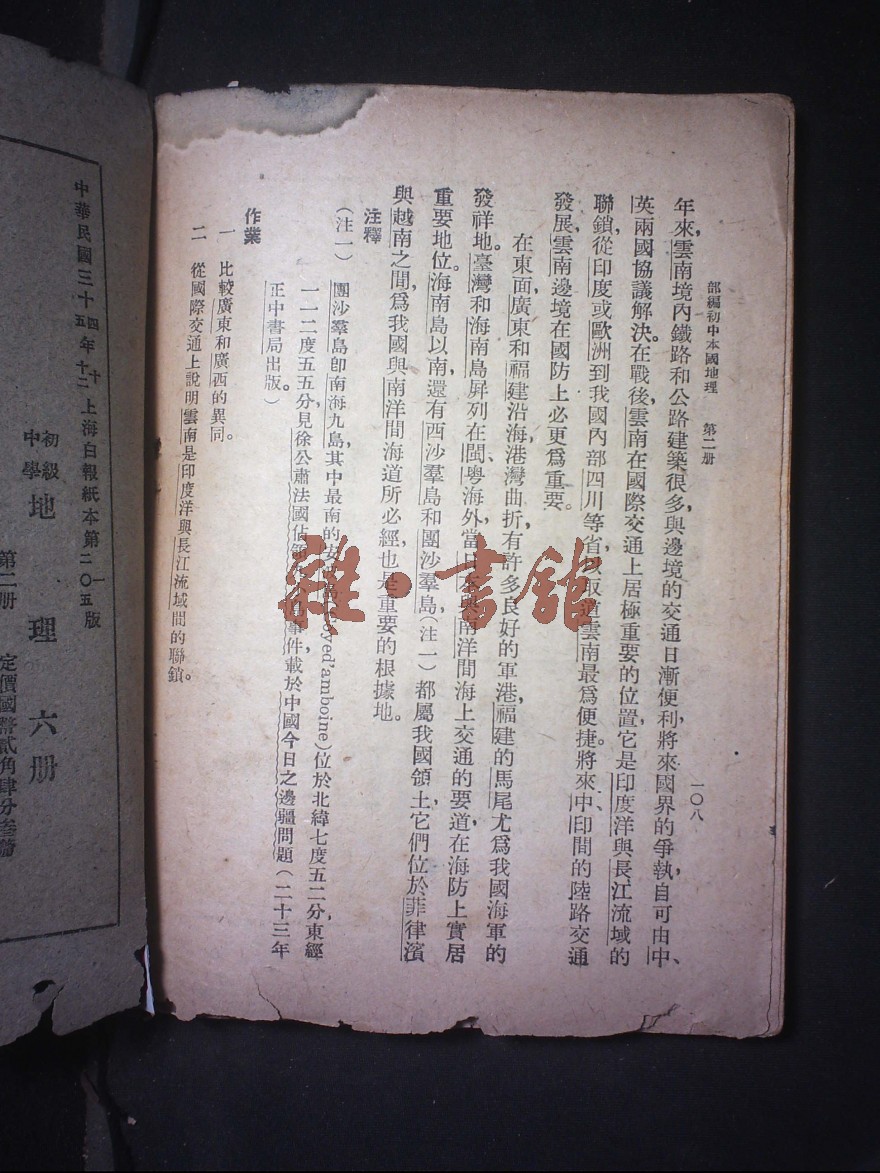 部編初中本國地理 第二册
一〇八
年來，雲南境內鐵路和公路建築很多，與邊境的交通日漸便利，將來國界的爭執，自可由中、
英兩國協議解決。在戰後，雲南在國際交通上居極重要的位置，它是印度洋與長江流域的
聯鎖，從印度或歐洲到我國內部四川等省，取道雲南最爲便捷。將來中、印間的陸路交通
發展，雲南邊境在國防上必更爲重要。
在東面，廣東和福建沿海港灣曲折，有許多良好的軍港，福建的馬尾尤爲我國海軍的
發祥地。臺灣和海南島屏列在閩、粵海外，當日本與南洋間海上交通的要道，在海防上實居
重要地位。海南島以南，還有西沙羣島和團沙羣島（注一）都屬我國領土，它們位於菲律濱
與越南之間，爲我國與南洋間海道所必經，也是重要的根據地。
注釋
（注一） 團沙羣島卽南海九島，其中最南的安 oyed'amboine)位於北緯七度五二分，東經
一一二度五五分，見徐公肅法國佔領 事件，載於中國今日之邊疆問題（二十三年
正中書局出版。）
作業
一 比較廣東和廣西的異同。
二 從國際交通上說明雲南是印度洋與長江流域間的聯鎖。
雜·書館
中華民國三十四年十 上海白報紙本第一版
五 十二 二〇五
初級中學 地理 六册
第二册 定價國幣貳角肆分